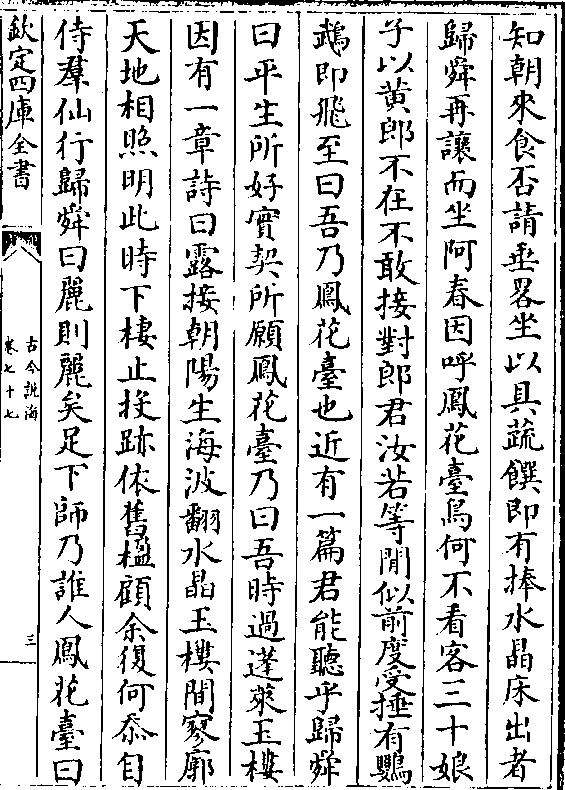 知朝來食否請垂畧坐以具蔬饌即有捧水晶床出者
歸舜再讓而坐阿春因呼鳳花臺鳥何不看客三十娘
子以黄郎不在不敢接對郎君汝若等閒似前度受捶有鸚
鵡即飛至曰吾乃鳳花臺也近有一篇君能聽乎歸舜
曰平生所好實契所願鳳花臺乃曰吾時過蓬萊玉樓
因有一章詩曰露接朝陽生海波翻水晶玉樓間寥廓
天地相照明此時下棲止投跡依舊楹顧余復何忝日
侍羣仙行歸舜曰麗則麗矣足下師乃誰人鳳花臺曰
欽定四庫全書
古今說海
卷七十七
三